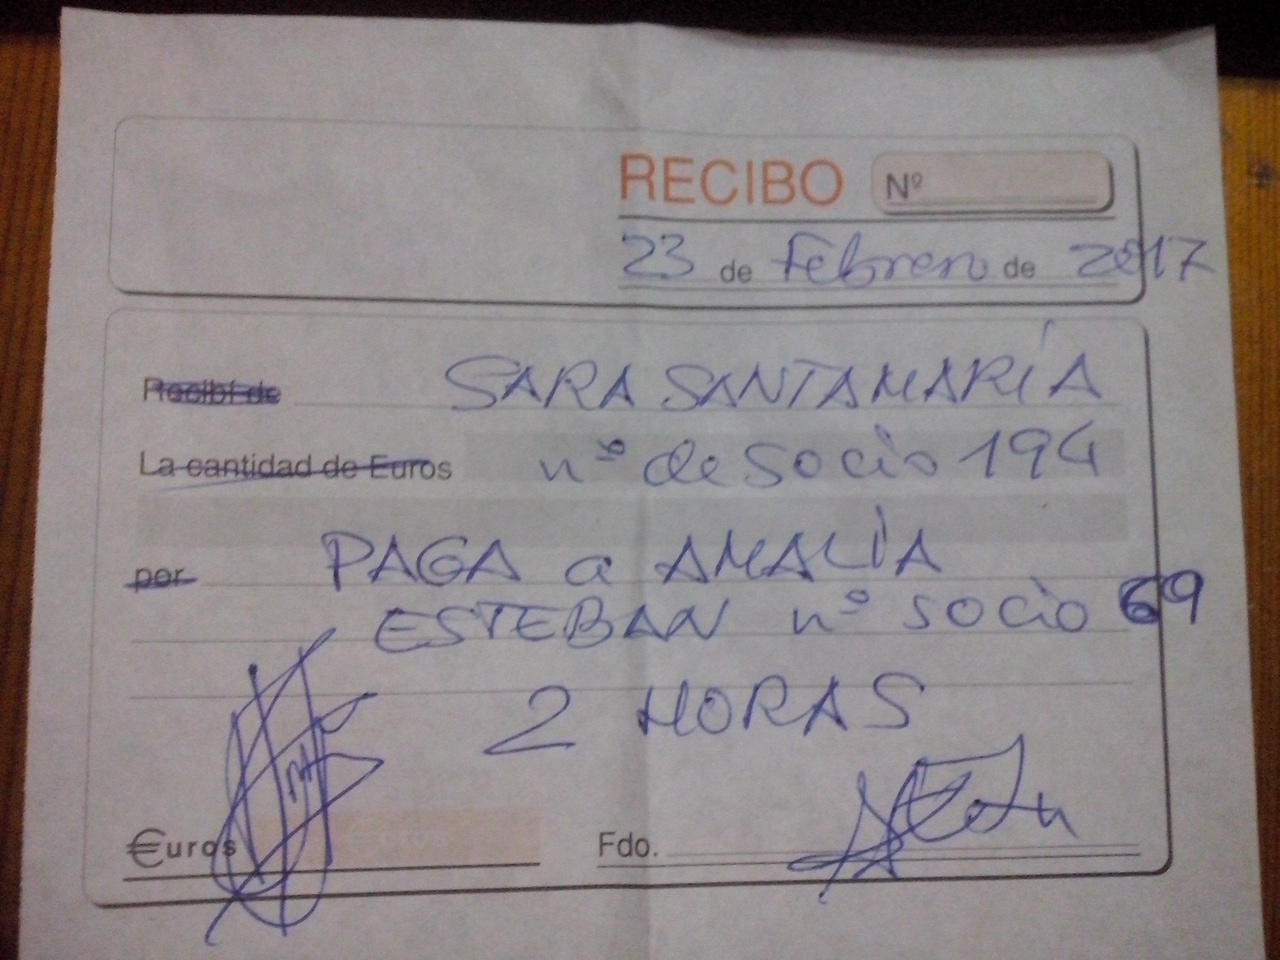 RECIBO Nº
23 de Febrero de 2017
Recibí de SARA SANTAMARÍA
La cantidad de Euros nº de socio 194
por PAGA a AMALIA
ESTEBAN nº socio 69
2 HORAS
€uros Fdo.